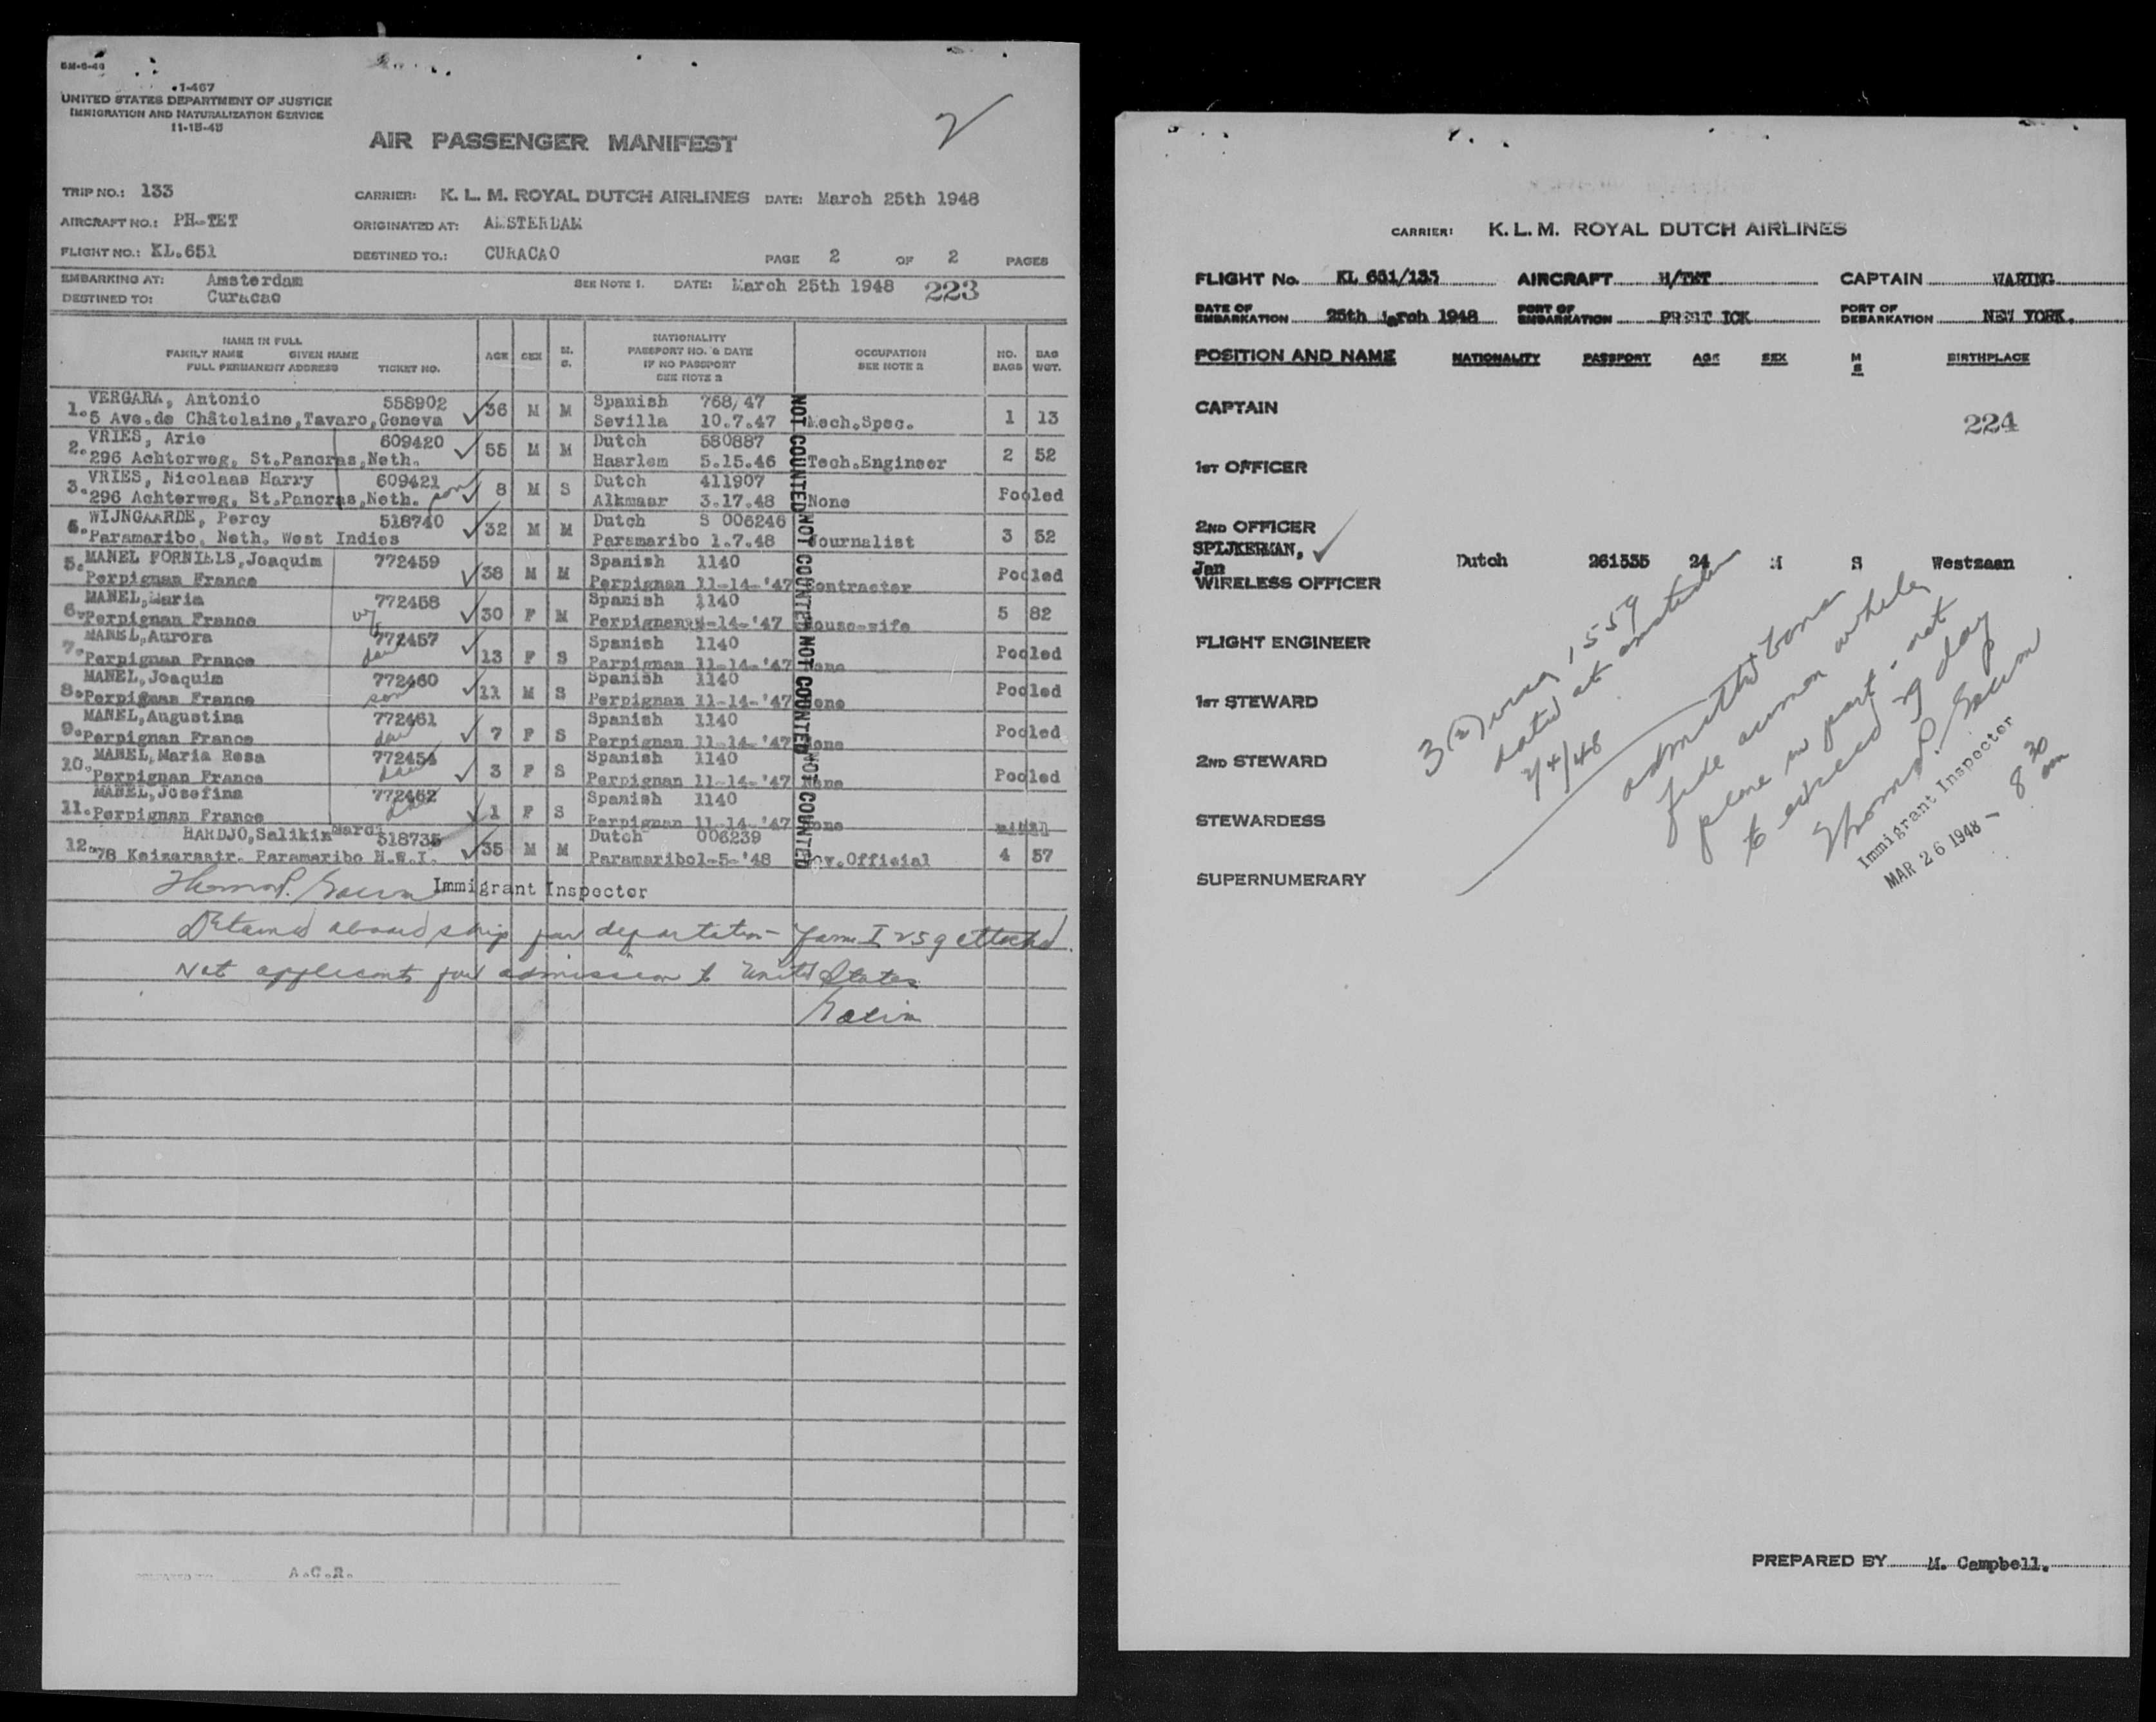 5M-6-46
1-467
UNITED STATES DEPARTMENT OF JUSTICE
IMMIGRATION AND NATURALIZATION SERVICE
11-15-45
2
AIR PASSENGER MANIFEST
TRIP NO.: 133 CARRIER: K. L. M. ROYAL DUTCH AIRLINES DATE: March 25th 1948
AIRCRAFT NO.: PH-TET ORIGINATED AT: AMSTERDAM
FLIGHT NO.: KL.651 DESTINED TO.: CURACAO PAGE 2 OF 2 PAGES
EMBARKING AT: Amsterdam SEE NOTE 1. DATE: March 25th 1948 223
DESTINED TO: Curacao
NAME IN FULL
FAMILY NAME GIVEN NAME
FULL PERMANENT ADDRESS TICKET NO. AGE SEX M. S. NATIONALITY PASSPORT NO. & DATE IF NO PASSPORT SEE NOTE 2 OCCUPATION SEE NOTE 2 NO. BAGS BAG WGT.
VERGARA, Antonio 558902 Spanish 768/47
1. 5 Ave.de Châtelaine,Tavaro,Geneva 36 M M Sevilla 10.7.47 Mech.Spec. 1 13
VRIES, Arie 609420 Dutch 580887
2. 296 Achterweg, St.Pancras,Neth. 55 M M Haarlem 5.15.46 Tech.Engineer 2 52
VRIES, Nicolaas Harry 609421 Dutch 411907
3. 296 Achterweg, St.Pancras,Neth. son 8 M S Alkmaar 3.17.48 None Pooled
WIJNGAARDE, Percy 518740 Dutch S 006246
Paramaribo, Neth. West Indies 32 M M Paramaribo 1.7.48 Journalist 3 52
5. MANEL FORNILLS, Joaquim 772459 Spanish 1140
Perpignan France 38 M M Perpignan 11-14-'47 Contractor Pooled
MANEL, Maria 772458 Spanish 1140
6. Perpignan France 30 F M Perpignan -14-'47 House-wife 5 82
MANEL, Aurora 772457 Spanish 1140
7. Perpignan France dau 13 F S Perpignan 11-14-'47 None Pooled
MANEL, Joaquim 772460 Spanish 1140
8. Perpignan France son 11 M S Perpignan 11-14-'47 None Pooled
MANEL, Augustina 772461 Spanish 1140
9. Perpignan France dau 7 F S Perpignan 11-14-'47 None Pooled
10. MANEL, Maria Rosa 772454 Spanish 1140
Perpignan France dau 3 F S Perpignan 11-14-'47 None Pooled
MANEL, Josefina 772462 Spanish 1140
11. Perpignan France dau 1 F S Perpignan 11-14-'47 None
HARDJO, Salikin Mardi 518735 Dutch 006239
12. 78 Keizerstr. Paramaribo N.W.I. 35 M M Paramaribo 1-5-'48 Gov.Official 4 57
NOT COUNTED NOT COUNTED NOT COUNTED NOT COUNTED
Immigrant Inspector
Detained aboard ship for deportation - Form I 259 attached.
Not applicants for admission to United States
A.C.R.
CARRIER: K. L. M. ROYAL DUTCH AIRLINES
FLIGHT No. KL 651/133 AIRCRAFT H/TET CAPTAIN WARING
DATE OF EMBARKATION 25th March 1948 PORT OF EMBARKATION PRESTICK PORT OF DEBARKATION NEW YORK.
POSITION AND NAME NATIONALITY PASSPORT AGE SEX M S BIRTHPLACE
CAPTAIN
224
1ST OFFICER
2ND OFFICER
SPIJKERMAN,
Jan Dutch 261535 24 M S Westzaan
WIRELESS OFFICER
FLIGHT ENGINEER
1ST STEWARD
2ND STEWARD
STEWARDESS
SUPERNUMERARY
3(2) visa 1559
dated at Amsterdam
2/4/48
admitted bona
fide airman while
plane in port - not
to exceed 29 days
Immigrant Inspector
MAR 26 1948
8 30 am
PREPARED BY M. Campbell.